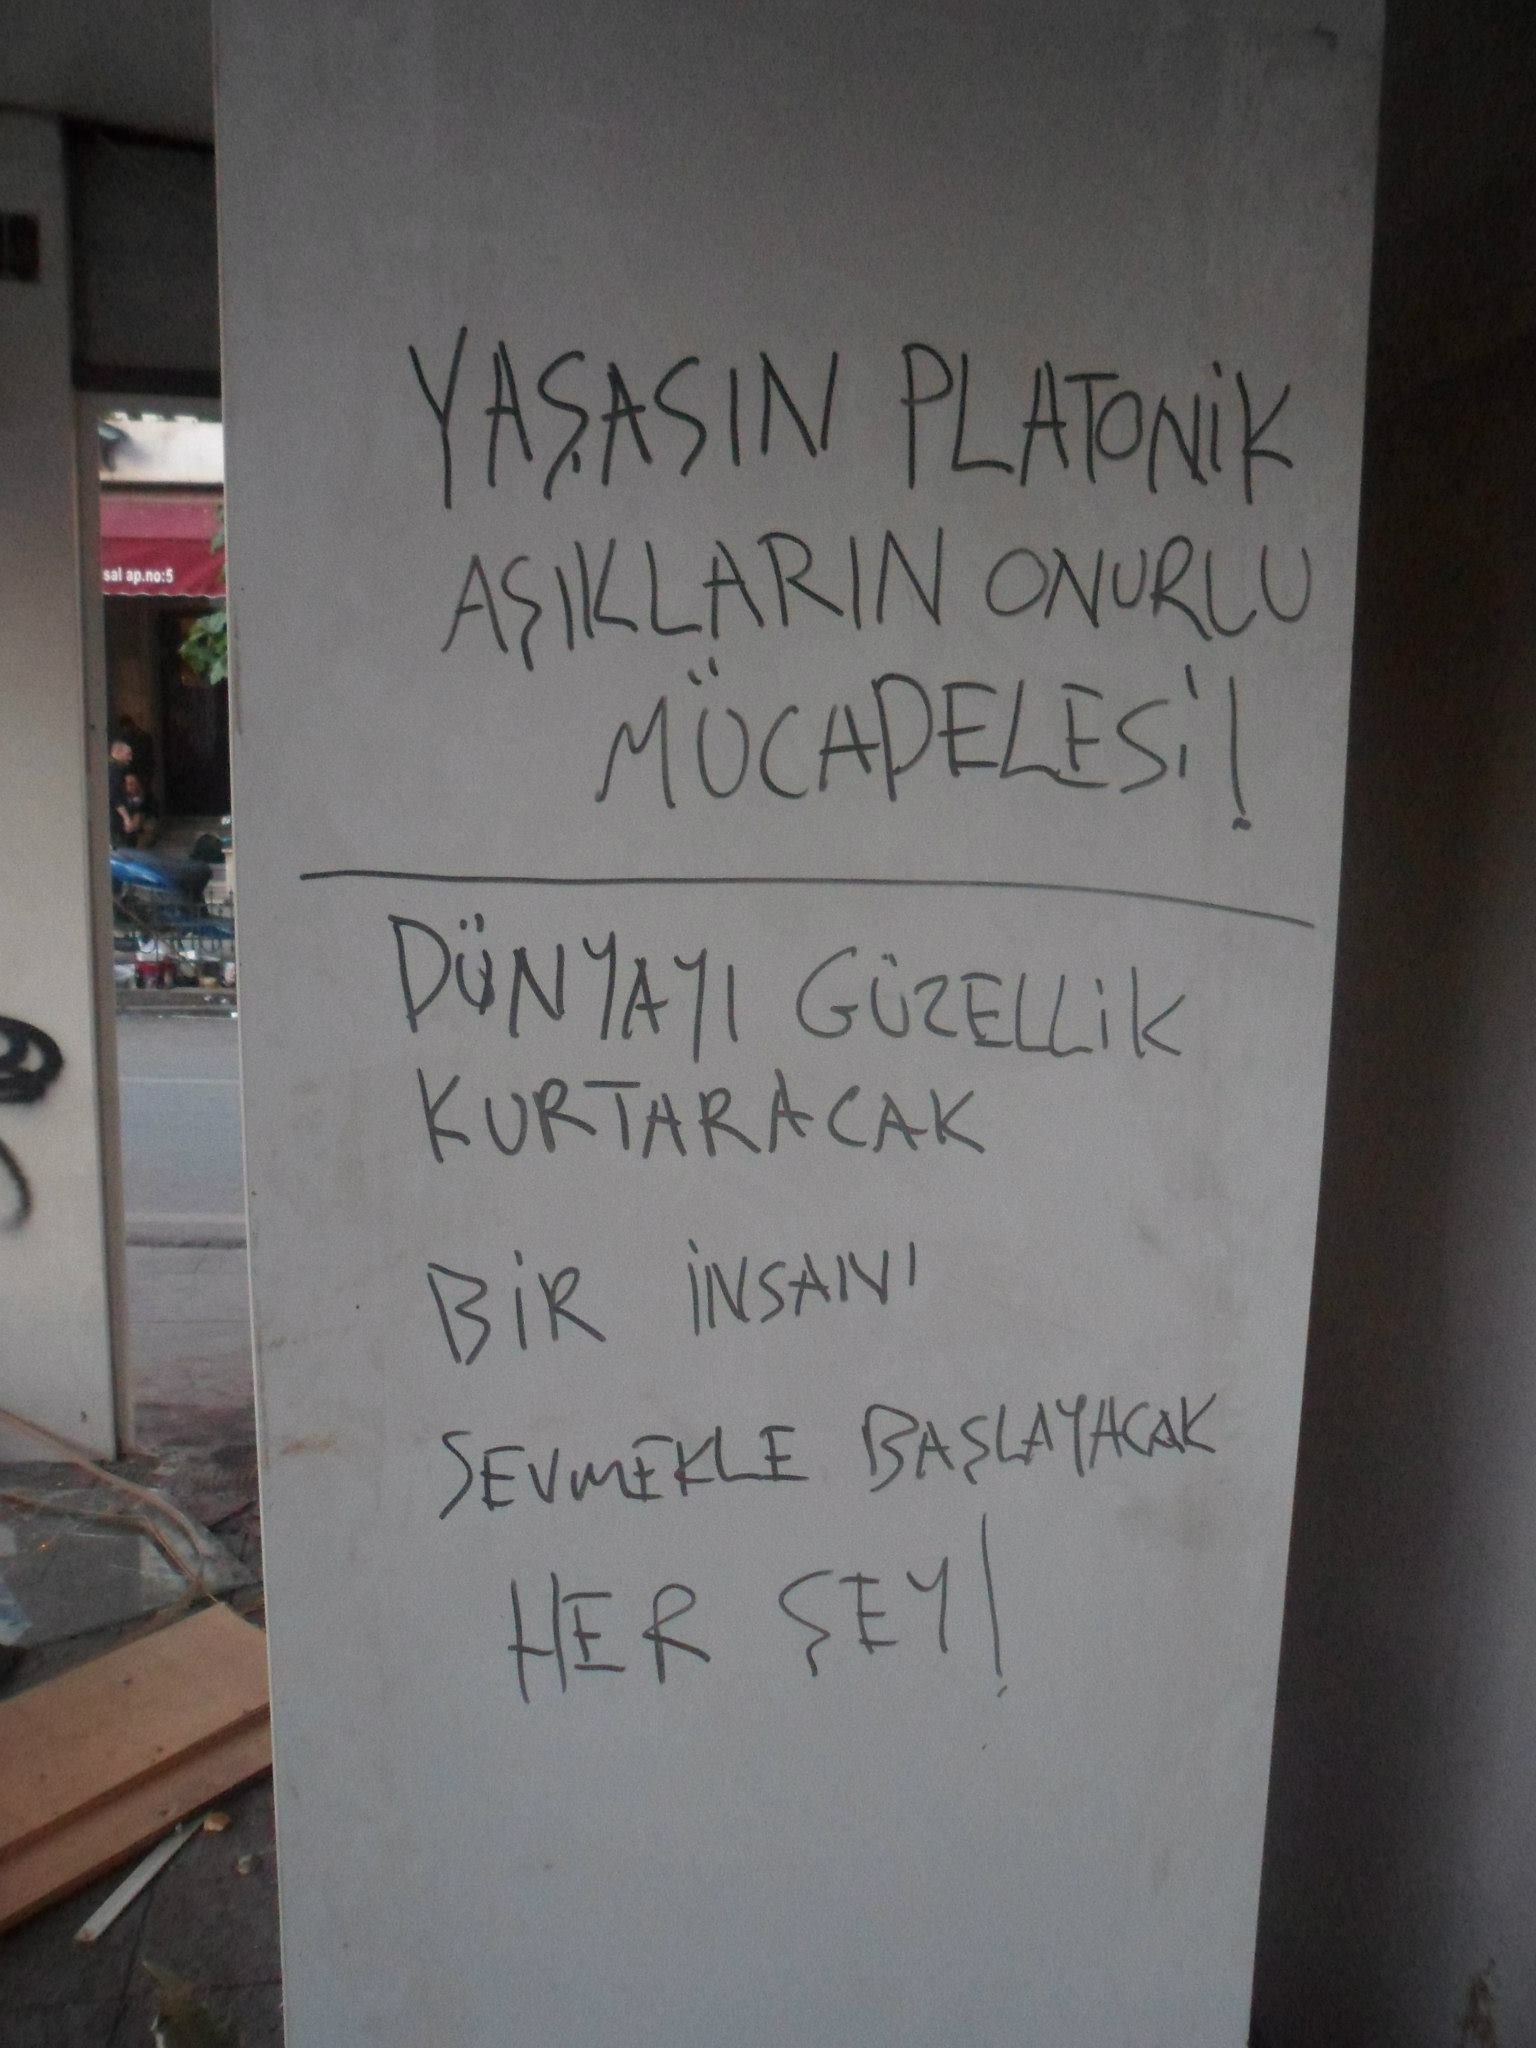 YAŞASIN PLATONİK
AŞIKLARIN ONURLU
MÜCADELESİ!
DÜNYAYI GÜZELLİK
KURTARACAK
BİR İNSANI
SEVMEKLE BAŞLAYACAK
HER ŞEY!
sal ap.no:5